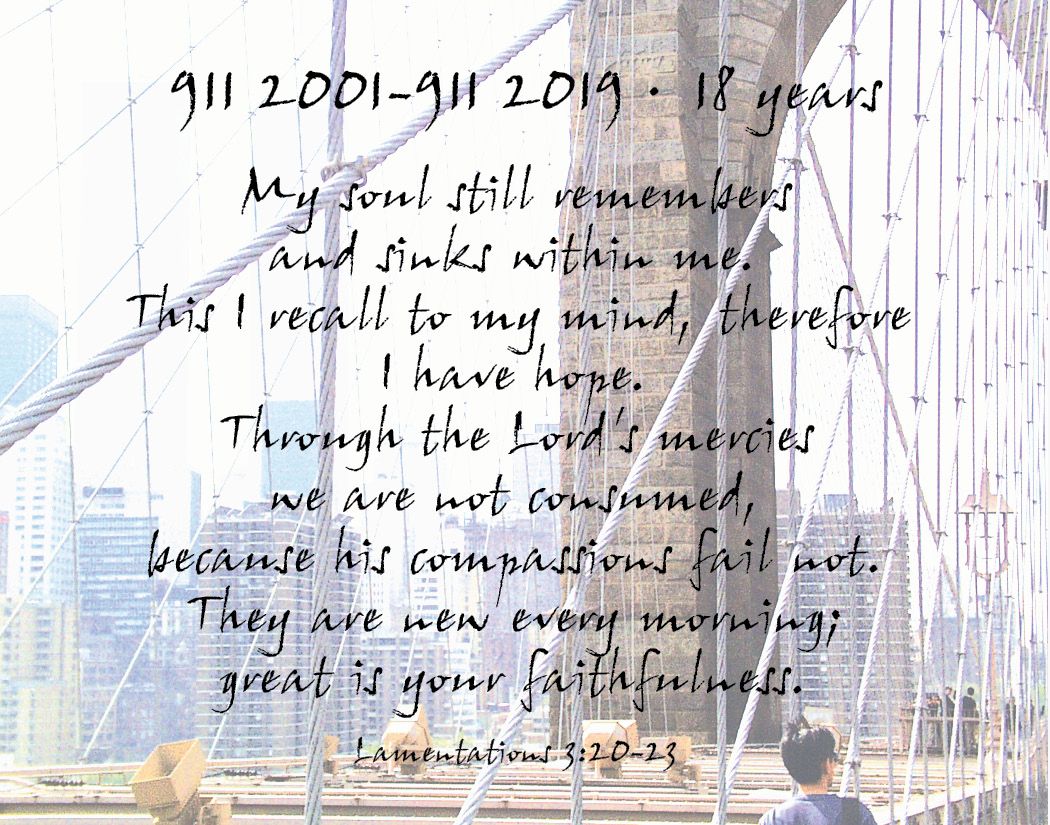 911 2001-911 2019 · 18 years
My soul still remembers
and sinks within me.
This I recall to my mind, therefore
I have hope.
Through the Lord's mercies
we are not consumed,
because his compassions fail not.
They are new every morning;
great is your faithfulness.
Lamentations 3:20-23